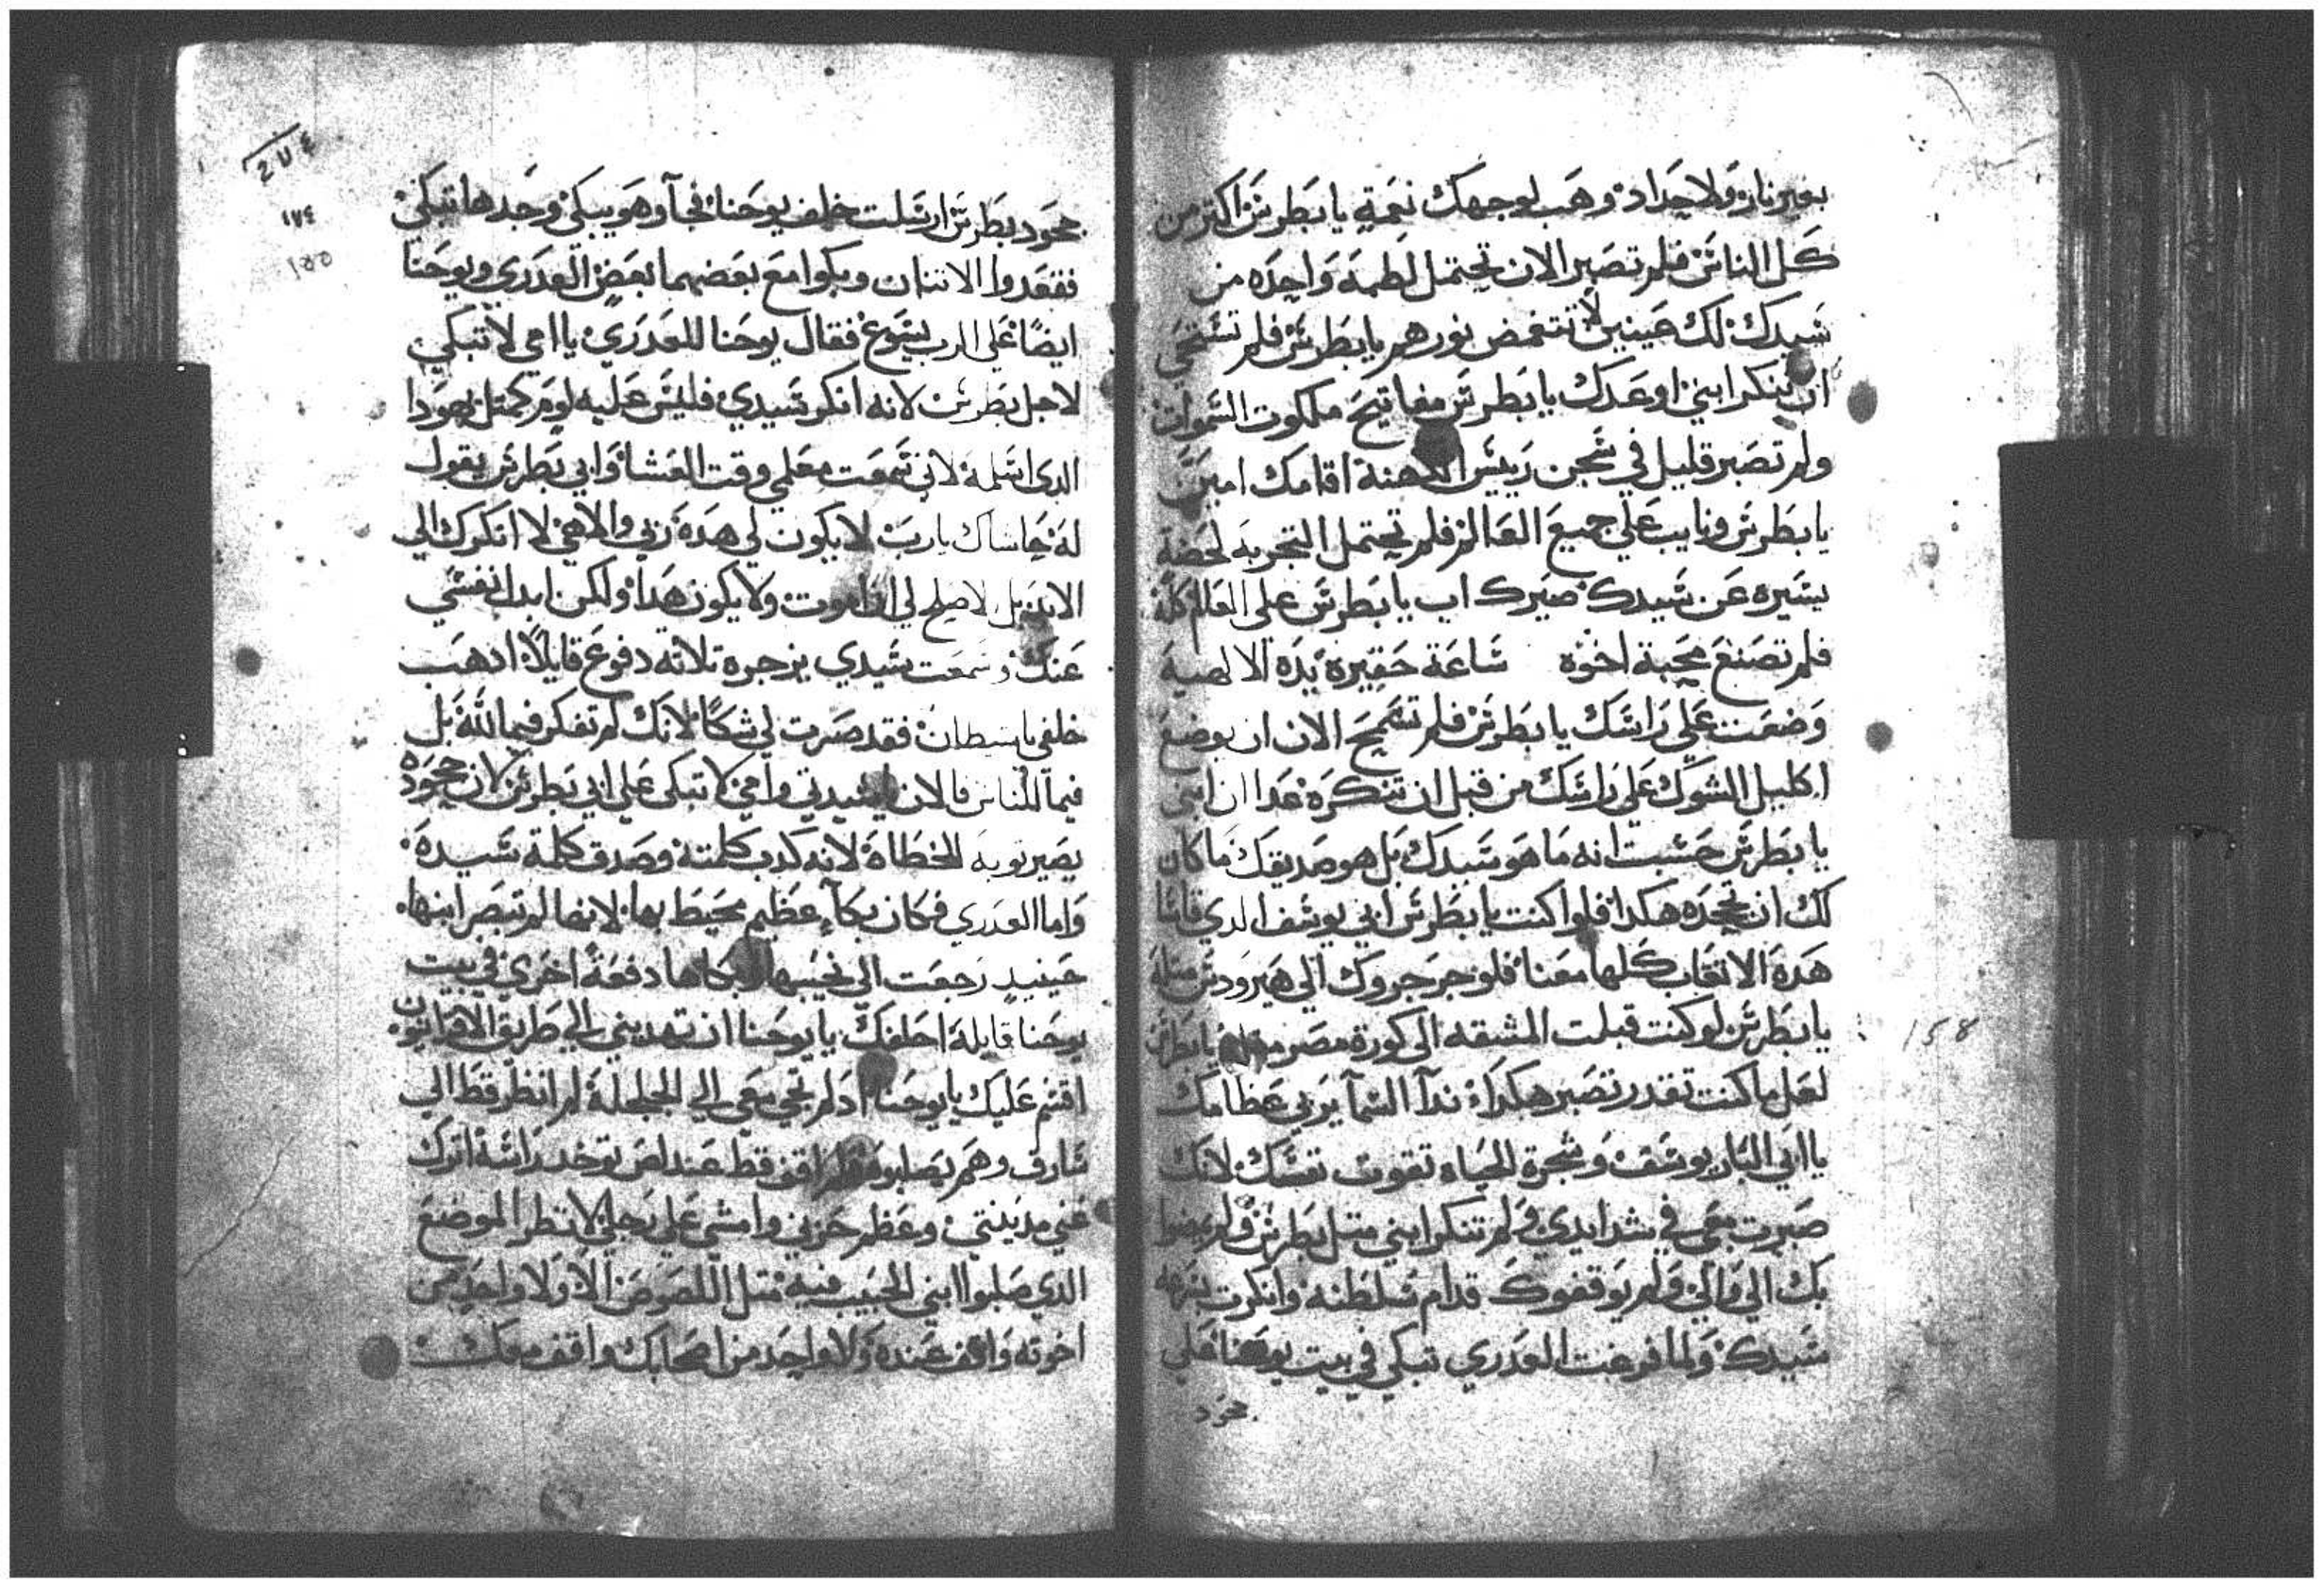 بغير نار ولا حداد وهب لوجهك نعمة يا بطرس اكتر من
كل الناس فلم تصبر الان تحتمل لطمة واحده من
سيدك لك عينين لا تتغمض نورهم يا بطرس فلم تستحي
ان تنكر ابني اوعدك يا بطرس مفاتيح ملكوت السموات
ولم تصبر قليل في سجن رييس الكهنة اقامك امين
يا بطرس ونايب علي جميع العالم فلم تحتمل التجربه لحضة
يسيره عن سيدك صيرك اب يا بطرس على العالم كله
فلم تصنع محبة اخوه ساعة حقيرة يده الالهية
وضعت علي راسك يا بطرس فلم تسمح الان ان يوضع
اكليل الشوك علي راسك من قبل ان تنكره عدا ان ابني
يا بطرس حسبت انه ما هو سيدك بل هو صديقك ما كان
لك ان تجحده هكدا فلوا كنت يا بطرس ابي يوسف الدي قاسا
هده الاتعاب كلها معنا فلو جرجروك الي هيرودس متله
يا بطرس لو كنت قبلت المشقه الى كورة مصر يا بطرس
لعل ما كنت تقدر تصبر هكدا ندآ السمآ يربي عظامك
يا ابي البار يوسف وشجرة الحياه تقوت نفسك لانك
صبرت معي في شدايدي ولم تنكر ابني متل بطرس ولم يمضوا
بك الي والي ولم يوقفوك قدام سلطنه وانكرت
سيدك ولما فرغت العدري تبكي في بيت يوحنا علي
جحود
٢٧٤
١٧٤
١٥٥
158
جحود بطرس ارسلت خلف يوحنا فجآ وهو يبكي وجدها تبكي
فقعدوا الاتنان وبكوا مع بعضهما بعض العدري ويوحنا
ايضا علي الرب يسوع فقال يوحنا للعدري يا امي لا تبكي
لاجل بطرس لانه انكر سيدي فليس عليه لوم كمتل يهودا
الدي اسلمه لاني سمعت معلمي وقت العشا وابي بطرس يقول
له حاشاك يارب لا يكون لي هده ربي والاهي لا انكرك الي
الابد بل لاصلح لي ان اموت ولا يكون هدا ولكن ابدل نفسي
عنك وسمعت سيدي يزجره تلاته دفوع قايلا ادهب
خلفي يا شيطان فقد صرت لي شكا لانك لم تفكر فيما لله بل
فيما للناس فالان يا سيدتي وامي لا تبكي علي ابي بطرس لان جحوده
يصير توبه للخطاة لانه كدب كلمته وصدق كلمة سيده
واما العدري فكان بكآء عظيم محيط بها لانها لم تبصر ابنها
حينيد رجعت الى نحيبها وبكاها دفعة اخرى في بيت
يوحنا قايلة احلفك يا يوحنا ان تهديني الي طريق الاقرانيون
اقسم عليك يا يوحنا ادلم تجي معي الي الجلجلة لم انظر قط الي
سارق وهم يصلبوه فلم اقف قط عند لص توخد راسه اترك
عني مدينتي وعظم حزني وامشي علي رجلي لانظر الموضع
الدي صلبوا ابني الحبيب فيه متل اللصوص الا ولا واحد من
اخوته واقف عنده ولا واحد من اصحابك واقف معك